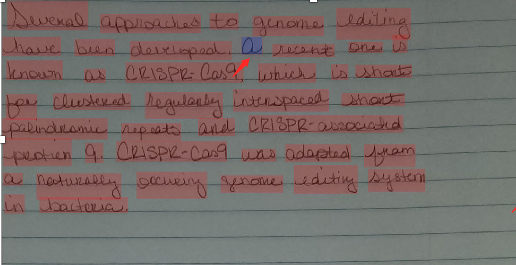 Several approaches to genome editing
have been developed. a recent one is
known as CRISPR-Cas9, which is short
for clustered regularly interspaced short
palindromic repeats and CRISPR-associated
protien 9. CRISPR-Cas9 was adapted from
a naturally occuring genome editing system
in bacteria.